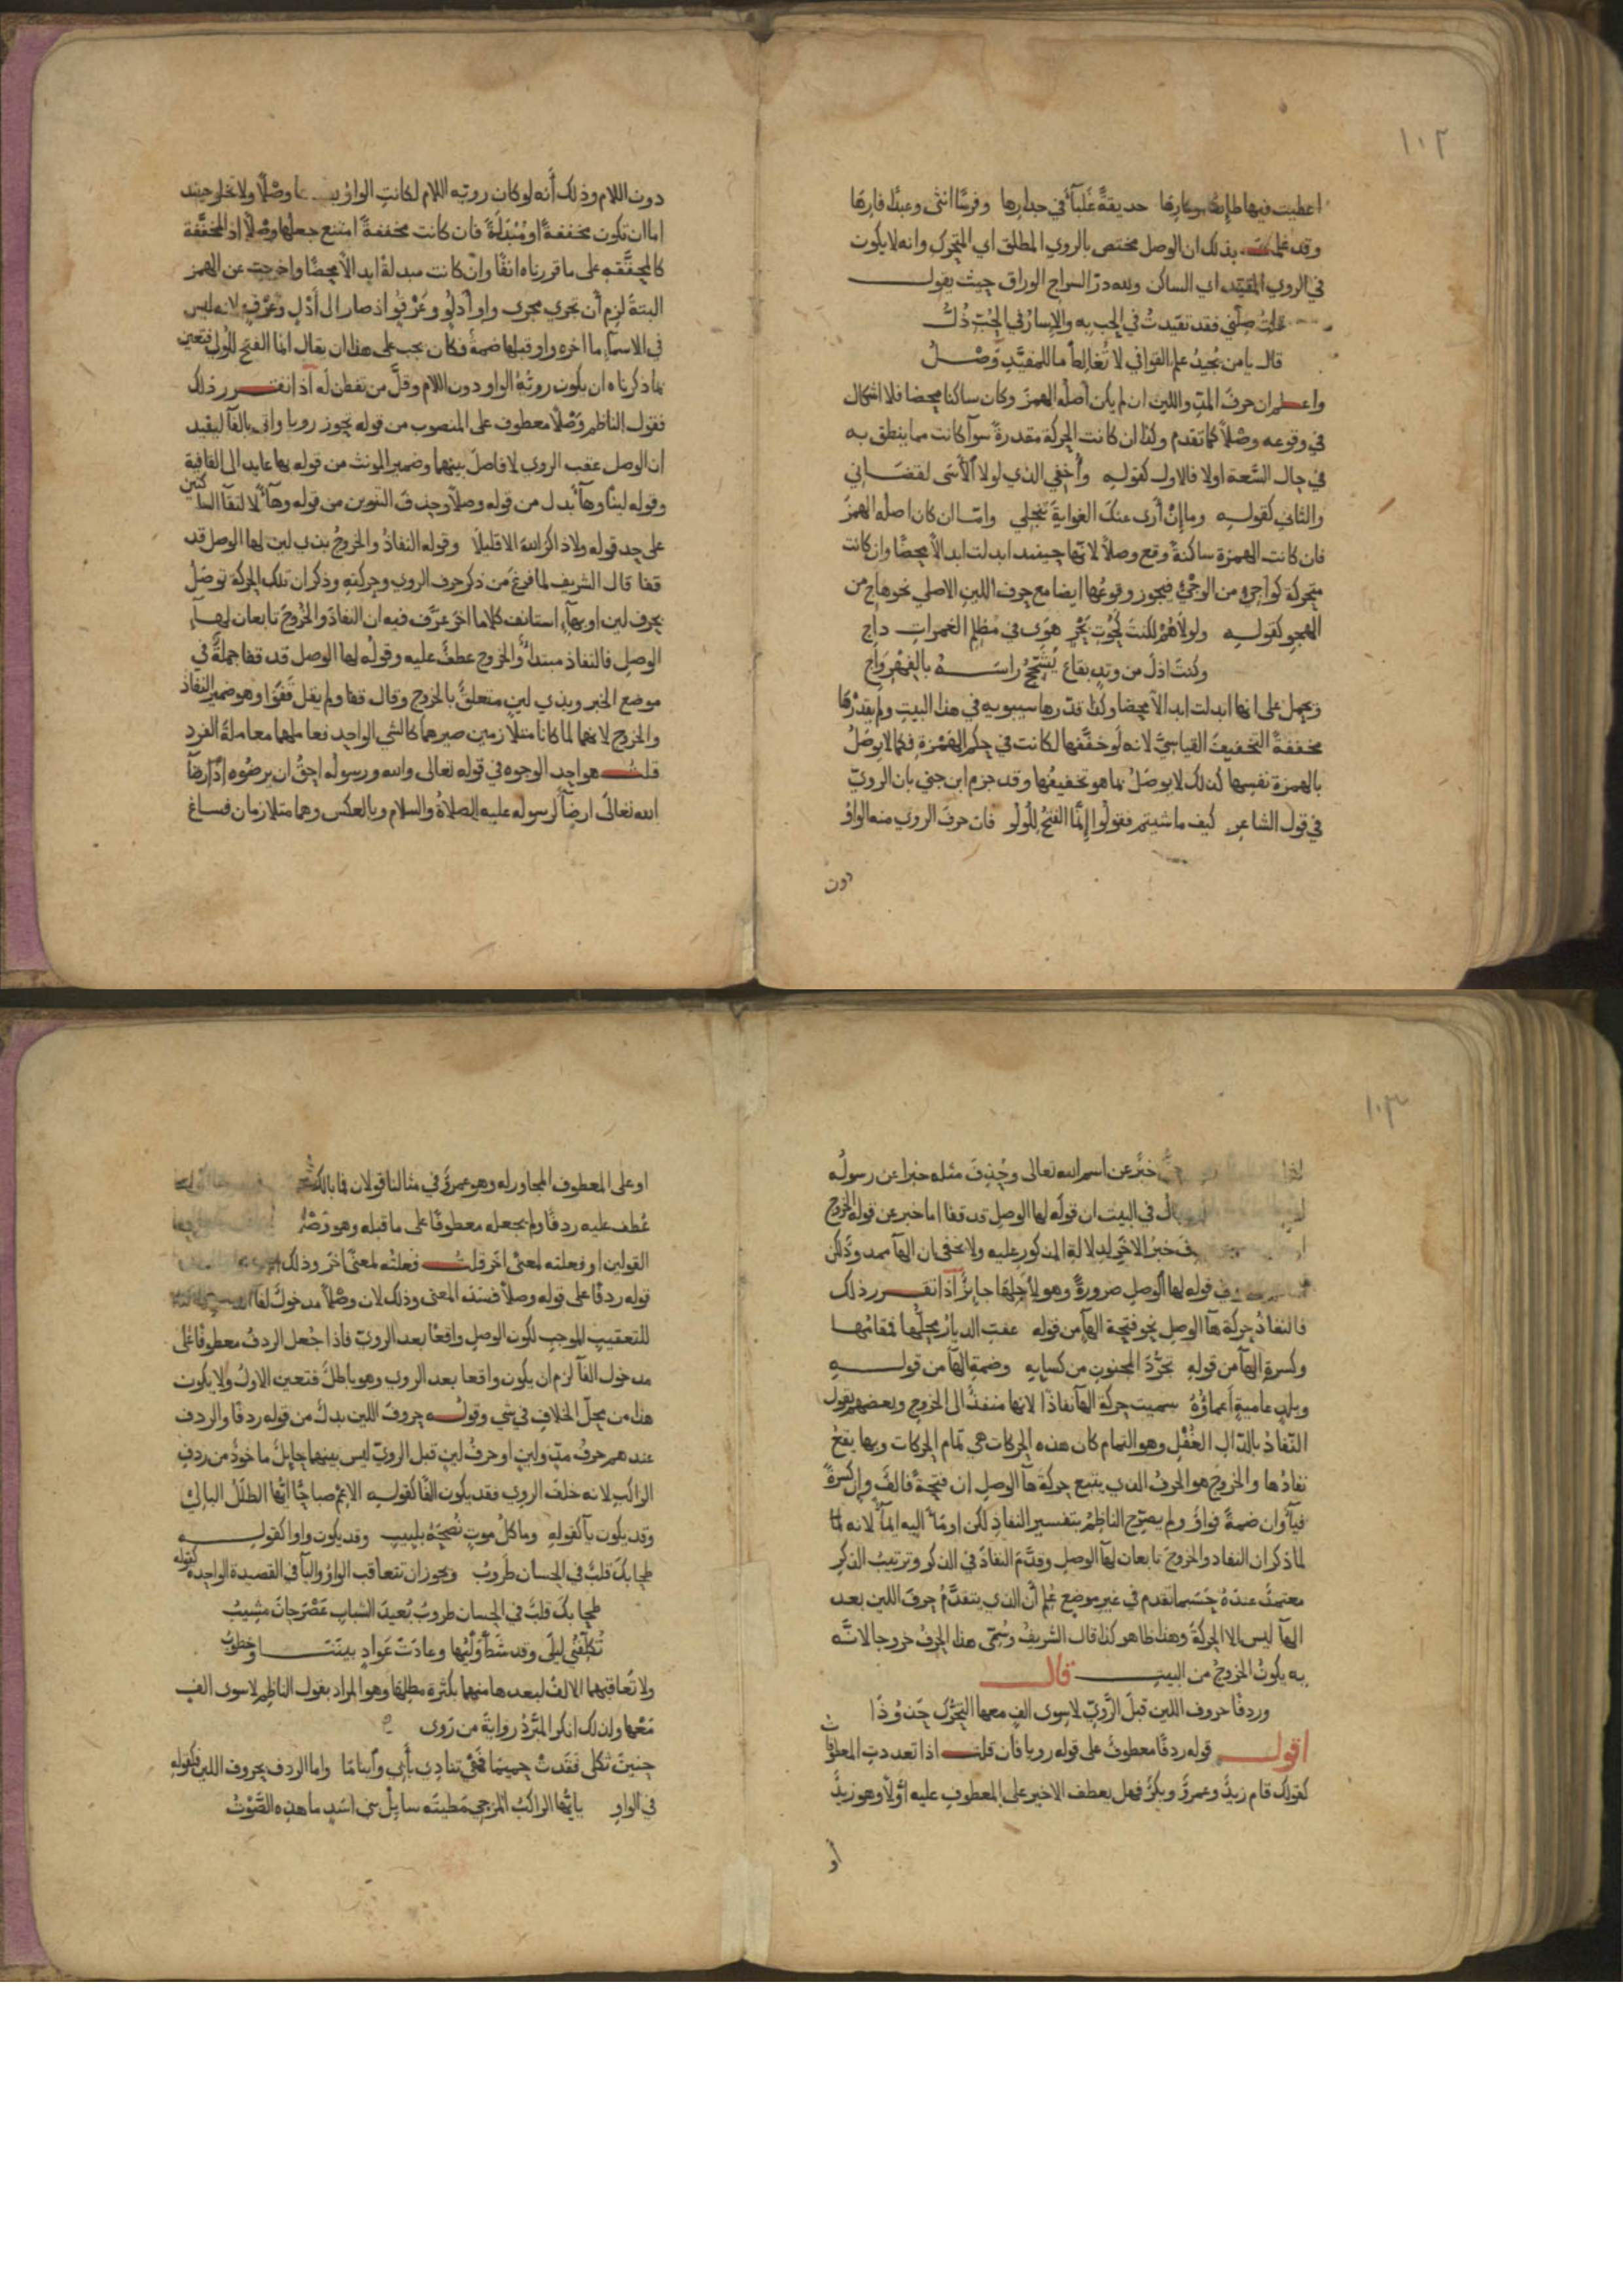 ١٠٢
اعطيت فيها طايعا او كارها حديقة غلباء في جدارها وفرسا انثى وعبدا فارها
وقد علمت بذلك ان الوصل مختص بالروي المطلق اي المتحرك وانه لا يكون
في الروي المقيد اي الساكن ولله در السراج الوراق حيث يقول
قلت صلني فقد تقيدت في الحب به والاسار في الحب ذل
قال يا من يجيد علم القوافي لا تغالط ما للمقيد وصل
واعلم ان حرف المد واللين ان لم يكن اصله الهمز وكان ساكنا محضا فلا اشكال
في وقوعه وصلا كما تقدم وكذا ان كانت الحركة مقدرة سوا كانت مما ينطق به
في حال السعة اولا فالاول كقوله واخفي الذي لولا الاسى لقضاني
والثاني كقوله وما إن أرى عنك الغواية تنجلي وامّا ان كان اصله الهمز
فان كانت الهمزة ساكنة وقع وصلا لانها حينيد ابدلت ابدالا محضا وان كانت
متحركة كواجئ من الوجئ فيجوز وقوعها ايضا مع حرف اللين الاصلي نحو هاج من
الهجو كقوله ولولاهم لكنت كحوت بحر هوى في مظلم الغمرات داج
وكنت اذل من وتد بقاع يشجج راسه بالفهر واج
وتحمل على انها ابدلت ابدالا محضا وكذا قدرها سيبويه في هذا البيت ولم يقدرها
مخففة التخفيف القياسي لانه لو خففها لكانت في حكم الهمزة فكما لا يوصل
بالهمزة نفسها كذلك لا يوصل بما هو تخفيفها وقد جزم ابن جني بان الروي
في قول الشاعر كيف ما شيتم فقولوا إنما الفتح للولو فان حرف الروي منه الواو
دون
دون اللام وذلك أنه لو كان رويه اللام لكانت الواو وصلا ولا تخلو حينيد
اما ان تكون مخففة او مبدلة فان كانت مخففة امتنع جعلها وصلا اذ المخففة
كالمحققة على ما قررناه انفا وان كانت مبدلة ابدالا محضا واخرجت عن الهمز
البتة لزم أن تجري مجرى واو أدلو وعرقو اذ صار الى أدل وعرق لانه ليس
في الاسماء ما اخره واو قبلها ضمة فكان يجب على هذا ان يقال انما الفتح للولي فتعين
بما ذكرناه ان يكون رويه الواو دون اللام وقل من تفطن له اذا تقرر ذلك
فقول الناظم وصلا معطوف على المنصوب من قوله تجوز رويا واتى بالفا ليفيد
ان الوصل عقب الروي لا فاصل بينهما وضمير المونث من قوله بها عايد الى القافية
وقوله لينا وهاء بدل من قوله وصلا وحذف التنوين من قوله وهاء لالتقا الساكنين
على حد قوله ولا ذاكر الله الا قليلا وقوله النفاذ والخروج بذي لين لها الوصل قد
قفا قال الشريف لما فرغ من ذكر حرف الروي وحركته وذكر ان تلك الحركة توصل
بحرف لين او بهاء استانف كلاما اخر عرّف فيه ان النفاذ والخروج تابعان لهاء
الوصل فالنفاذ مبتدا والخروج عطف عليه وقوله لها الوصل قد قفا جملة في
موضع الخبر وبذي لين متعلق بالخروج وقال قفا ولم يقل قفوا وهو ضمير النفاذ
والخروج لانهما لما كانا متلازمين صيرهما كالشي الواحد فعاملهما معاملة الفرد
قلت هو احد الوجوه في قوله تعالى والله ورسوله احق ان يرضوه اذ ارضا
الله تعالى ارضا لرسوله عليه الصلاة والسلام وبالعكس وهما متلازمان فساغ
١٠٣
خبر عن اسم الله تعالى وحذف مثله خبرا عن رسوله
في البيت ان قوله لها الوصل قد قفا اما خبر عن قوله الخروج
خبر الاخر لدلالة المذكور عليه ولا يخفى ان الها ممدودة لكن
في قوله لها الوصل ضرورة وهو لاجلها جايز اذا تقرر ذلك
فالنفاذ حركة ها الوصل نحو فتحة الها من قوله عفت الديار محلها فمقامها
وكسرة الها من قوله تجرد المجنون من كسايه وضمة الها من قوله
وبلد عامية أعماؤه سميت حركة الها نفاذا لانها منفذ الى الخروج وبعضهم يقول
النفاد بالدال الغفل وهو التمام كان هذه الحركات هي تمام الحركات وبها يقع
نفادها والخروج هو الحرف الذي يتبع حركة ها الوصل ان فتحة فالف وان كسرة
فيا وان ضمة فواو ولم يصرح الناظم بتفسير النفاذ لكن اوما اليه ايما لانه لما
لما ذكر ان النفاد والخروج تابعان لها الوصل وقدّم النفاذ في الذكر وترتيب الذكر
معتمد عنده حسبما تقدم في غير موضع علم أن الذي يتقدم حرف اللين بعد
الها ليس الا الحركة وهذا ظاهر كذا قال الشريف وسمى هذا الحرف خروجا لانه
به يكون الخروج من البيت قال
وردفا حروف اللين قبل الروي لا سوى الف معها التحرك حذو ذا
اقول قوله ردفا معطوف على قوله رويا فان قلت اذا تعددت المعطوفات
كقولك قام زيد وعمرو وبكر فهل يعطف الاخير على المعطوف عليه أولا وهو زيد
أو
او على المعطوف المجاور له وهو عمرو في مثالنا قولان فما بالك
عطف عليه ردفا ولم يجعله معطوفا على ما قبله وهو وصلا
القولين او فعلته لمعنى اخر قلت فعلته لمعنى اخر وذلك
قوله ردفا على قوله وصلا فسد المعنى وذلك لان وصلا مدخول لفا
للتعقيب الموجب لكون الوصل واقعا بعد الروي فاذا جعل الردف معطوفا على
مدخول الفا لزم ان يكون واقعا بعد الروي وهو باطل فتعين الاول ولا يكون
هذا من محل الخلاف في شي وقوله حروف اللين بدل من قوله ردفا والردف
عندهم حرف مد ولين او حرف لين قبل الروي ليس بينهما حايل ماخوذ من ردف
الراكب لانه خلف الروي فقد يكون الفا كقوله الا عم صباحا ايها الطلل البالي
وقد يكون يا كقوله وما كل موت نصحه بلبيب وقد يكون واوا كقوله
طحا بك قلب في الحسان طروب ويجوز ان تتعاقب الواو واليا في القصيدة الواحدة كقوله
طحا بك قلب في الحسان طروب بعيد الشباب عصر حان مشيب
تكلفني ليلى وقد شط وليها وعادت عواد بيننا وخطوب
ولا تعاقبهما الالف لبعدها منهما بكثرة مطلها وهو المراد بقول الناظم لا سوى الف
معها ولذلك انكر المبرد رواية من روى
حنين ثكلى فقدت حميما فهي تنادي بأبي وأبناما واما الردف بحروف اللين فكقوله
في الواو يا ايها الراكب المزجي مطيته سايل بني اسد ما هذه الصوت